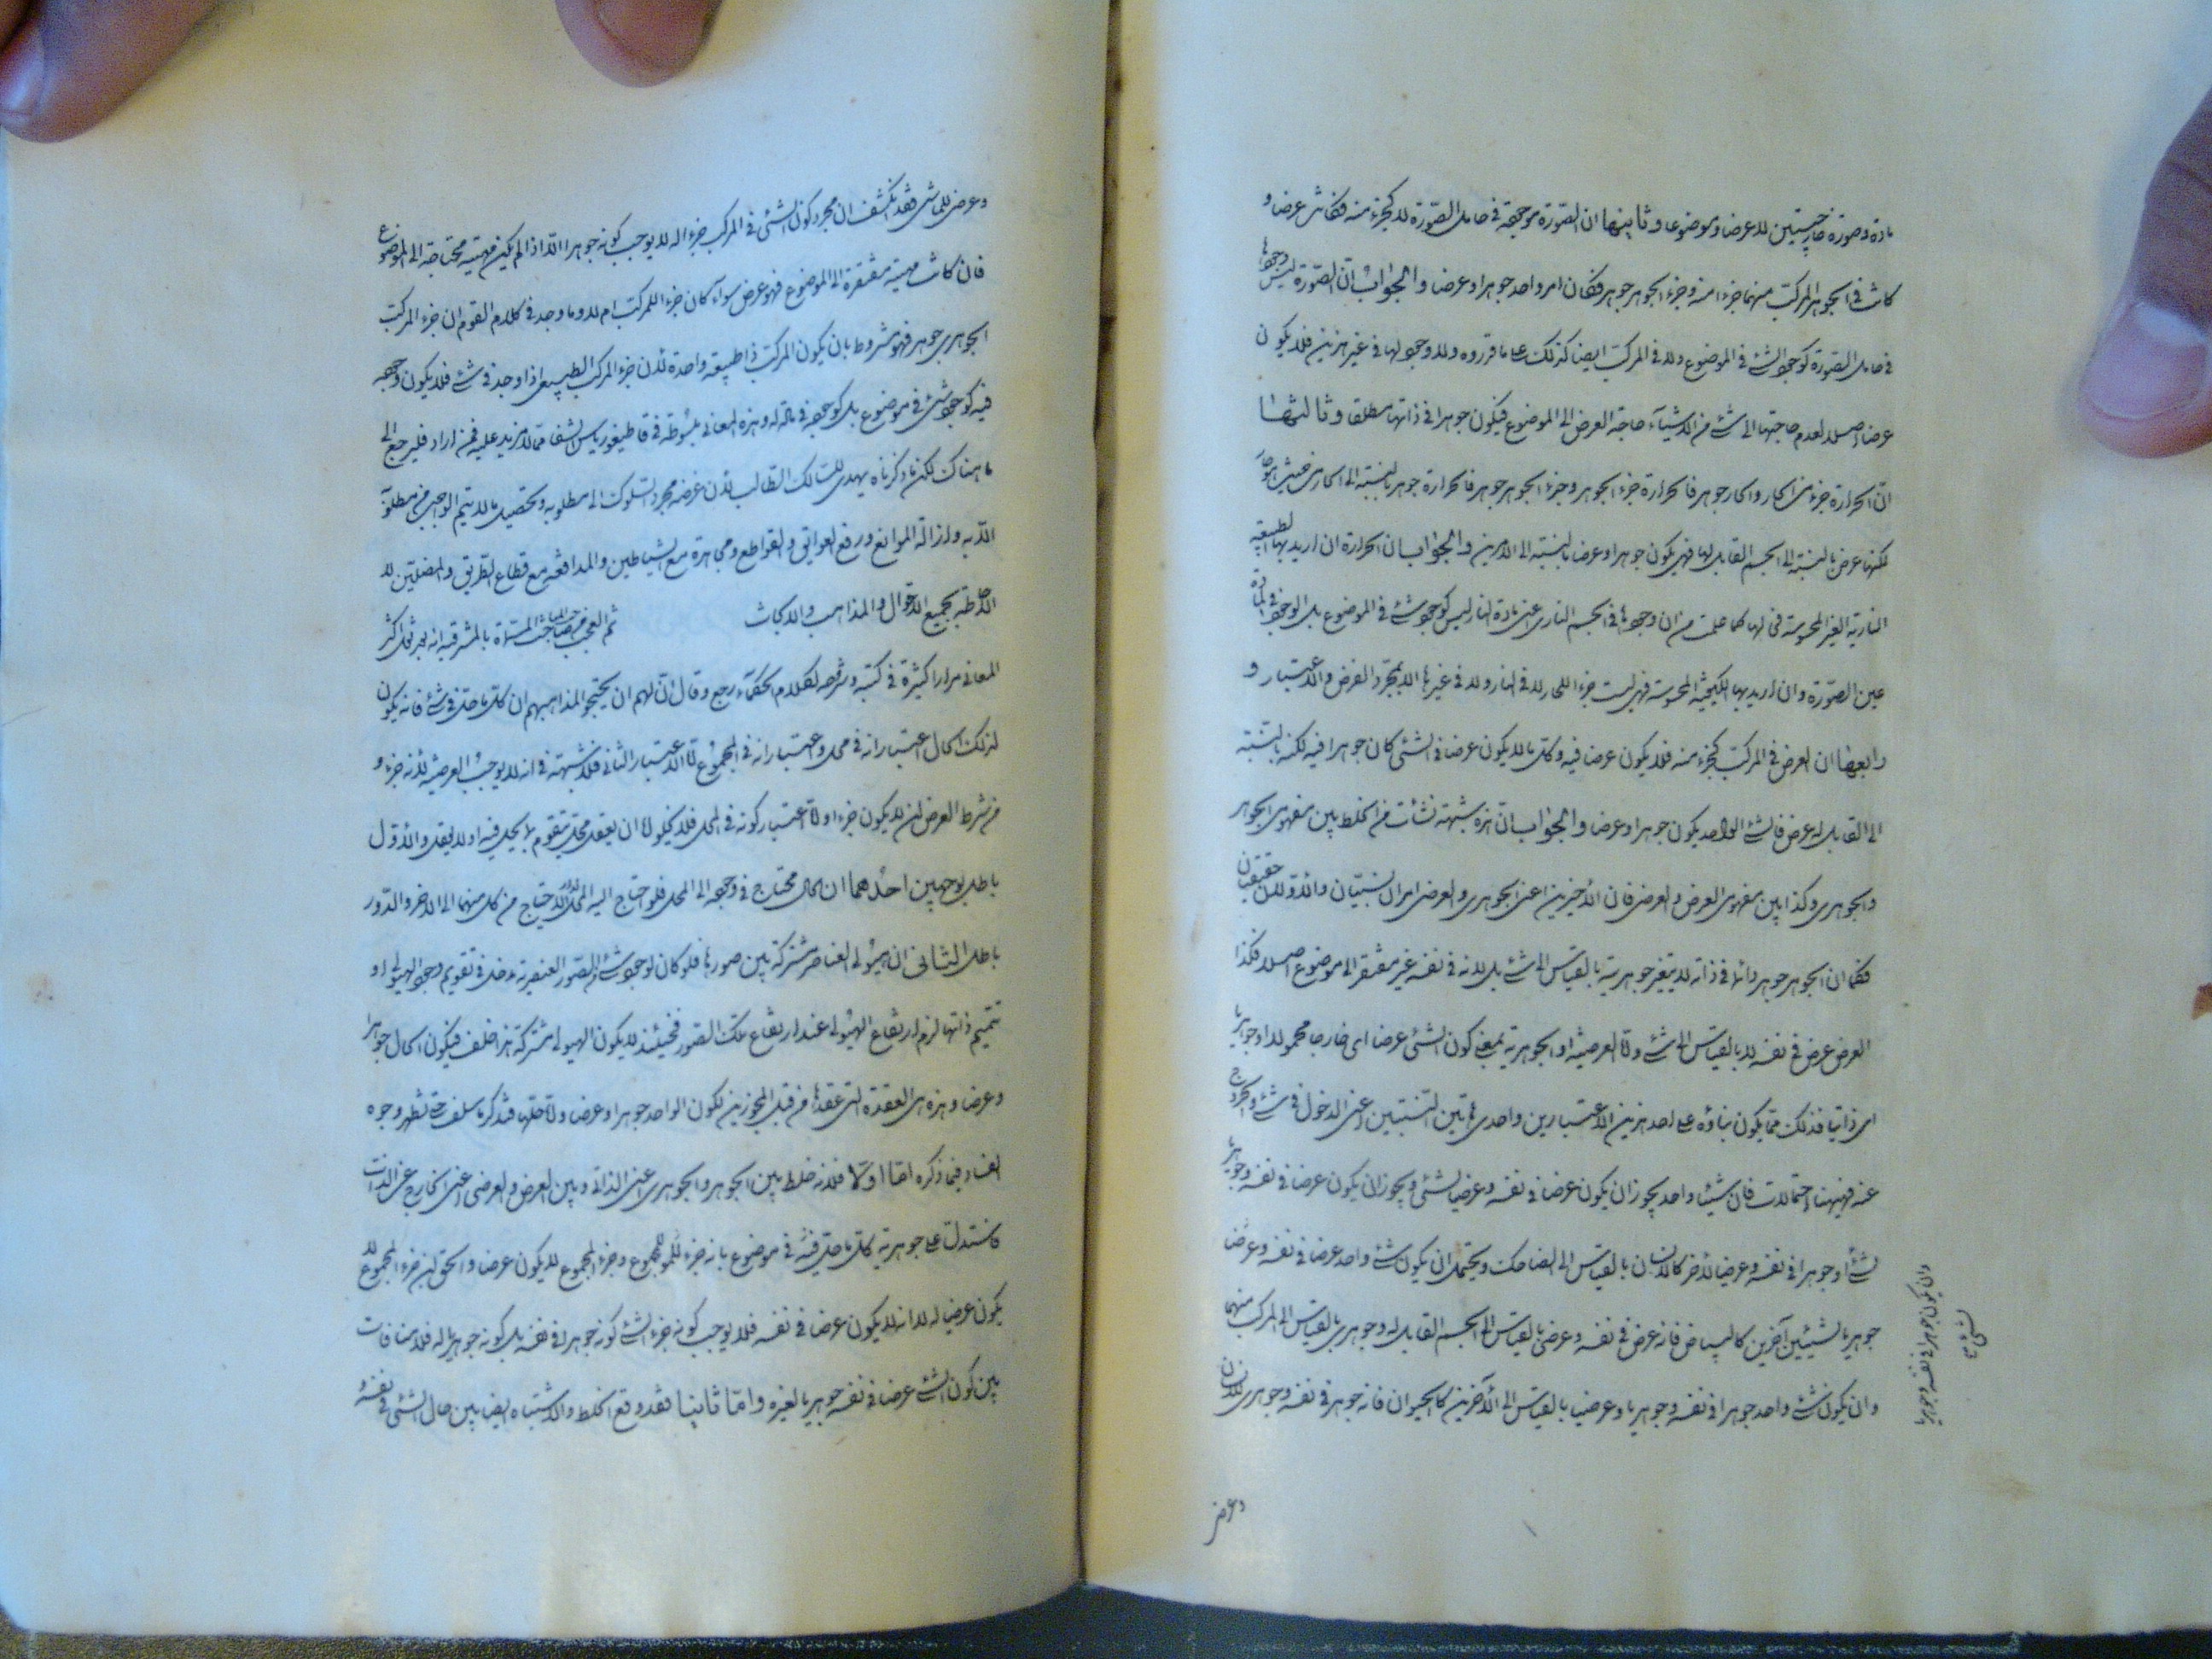 مادة وصورة خارجيتين للعرض وموضوعا وثانيها ان الصورة موجودة في حامل الصورة لا كجزء منه فكانت عرضا و
كانت في الجوهر المركب منهما جزءا منه وجزء الجوهر جوهر فكان امر واحد جوهرا وعرضا والجواب ان الصورة ليس وجودها
في حامل الصورة كوجود الشئ في الموضوع ولا في المركب ايضا كذلك على ما قرروه ولا وجود لها في غير هذين فلا يكون
عرضا اصلا لعدم حاجتها الى شئ من الاشياء حاجة العرض الى الموضوع فيكون جوهرا في ذاتها مطلقا وثالثها
ان الحرارة جزء من الحار والحار جوهر فالحرارة جزء الجوهر وجزء الجوهر جوهر فالحرارة جوهر بالنسبة الى الحار من حيث هو حار
لكنها عرض بالنسبة الى الجسم القابل لها فهي يكون جوهرا وعرضا بالنسبة الى الامرين والجواب ان الحرارة ان اريد بها الطبيعة
النارية الغير المحسوسة فهي لها كما علمت من ان وجودها في الجسم الناري اعني مادة النار ليس كوجود شئ في الموضوع بل الوجود في المادة
عين الصورة وان اريد بها الكيفية المحسوسة فهي ليست جزءا للحار لا في النار ولا في غيرها الا بمجرد الفرض والاعتبار و
رابعها ان العرض في المركب كجزء منه فلا يكون عرضا فيه وكل ما لا يكون عرضا في الشئ كان جوهرا فيه لكنه بالنسبة
الى القابل له عرض فالشئ الواحد يكون جوهرا وعرضا والجواب ان هذه شبهة نشأت من الخلط بين مفهومي الجوهر
والجوهري وكذا بين مفهومي العرض والعرضي فان الاخيرين اعني الجوهري والعرضي امران نسبيان والاولان حقيقيان
فكما ان الجوهر جوهر دائما في ذاته لا يتغير جوهريته بالقياس الى شئ بل لانه في نفسه غير مفتقر الى موضوع اصلا فكذا
العرض عرض في نفسه لا بالقياس الى شئ واما العرضية او الجوهرية بمعنى كون الشئ عرضا اى خارجا محمولا او جوهريا
اى ذاتيا فذلك مما يكون بناؤه على احد هذين الاعتبارين واحدى هاتين النسبتين اعني الدخول في شئ والخروج
عنه فههنا احتمالات فان شيئا واحدا يجوز ان يكون عرضا في نفسه وعرضيا لشئ ويجوز ان يكون عرضا في نفسه وجوهريا
لشئ او جوهرا في نفسه وعرضيا لآخر كالانسان بالقياس الى الضاحك ويحتمل ان يكون شئ واحد عرضا في نفسه وعرضيا
جوهريا لشيئين آخرين كالبياض فانه عرض في نفسه وعرضي بالقياس الى الجسم القابل له وجوهري بالقياس الى المركب منهما
وان يكون شئ واحد جوهرا في نفسه وجوهريا وعرضيا بالقياس الى الآخرين كالحيوان فانه جوهر في نفسه وجوهري للانسان
وان يكون جوهرا في نفسه وجوهريا
لشئ
وعرض
وعرض للماشي فقد انكشف ان مجرد كون الشئ في المركب جزءا له لا يوجب كونه جوهرا الا اذا لم يكن مهيته محتاجة الى الموضوع
فان كانت مهيته مفتقرة الى الموضوع فهو عرض سواء كان جزءا للمركب ام لا وما وجد في كلام القوم ان جزء المركب
الجوهري جوهر فهو مشروط بان يكون المركب ذا طبيعة واحدة لان جزء المركب الطبيعي اذا وجد في شئ فلا يكون وجوده
فيه كوجود شئ في موضوع بل كوجوده في مادة له وهذه المعاني مبسوطة في قاطيغورياس الشفا مما لا مزيد عليه فمن اراد فليرجع الى
ما هناك لكن ما ذكرناه يهدى للسالك الطالب لان غرضه مجرد السلوك الى مطلوبه وتحصيل ما لا يتم الواجب من مطلوبه
الا به وازالة الموانع ورفع العوائق والقواطع ومجاهدة مع الشياطين والمدافعة مع قطاع الطريق والمضلين لا
الاحاطة بجميع الاقوال والمذاهب والابحاث ثم العجب من صاحب المباحث المسماة بالمشرقية انه بعد نقل اكثر
المعاني مرارا كثيرة في كتبه وشرحه لكلام الحكماء رجع وقال ان لهم ان يحتجوا لمذاهبهم ان كل ما حل في شئ فانه يكون
لذلك الحال اعتبار انه في محل واعتبار انه في المجموع اما الاعتبار الثاني فلا شبهة في انه لا يوجب العرضية لانه جزء و
من شرط العرض ان لا يكون جزءا واما اعتبار كونه في المحل فلا يخلو اما ان يعقل محل يتقوم بما يحل فيه او لا يعقل والاول
باطل بوجهين احدهما ان الحال محتاج في وجوده الى المحل فلو احتاج اليه المحل لزم الاحتياج من كل منهما الى الآخر والدور
باطل الثاني ان هيولى العناصر مشتركة بين صورها فلو كان لوجود شئ من الصور العنصرية مدخل في تقويم وجود الهيولى او
تتميم ذاتها لزم ارتفاع الهيولى عند ارتفاع تلك الصور فحينئذ لا يكون الهيولى مشتركة هذا خلف فيكون الحال جوهرا
وعرضا وهذه هي العقدة التي عقدها من قبل المجوزين لكون الواحد جوهرا وعرضا واما حلها فتذكر ما سلف حتى تظهر وجوه
الفساد فيما ذكره اما اولا فلانه خلط بين الجوهر والجوهري اعني الذاتي وبين العرض والعرضي اعني الخارج عن الذات
فاستدل على جوهرية كل ما حل في شئ في موضوع بانه جزء للمجموع وجزء المجموع لا يكون عرضا والحق ان جزء المجموع لا
يكون عرضيا له لا انه لا يكون عرضا في نفسه فلا يوجب كونه جزء الشئ كونه جوهرا في نفسه بل كونه جوهريا له فلا منافات
بين كون الشئ عرضا في نفسه جوهريا لغيره واما ثانيا فقد وقع الخلط والاشتباه ايضا بين حال الشئ في نفسه و